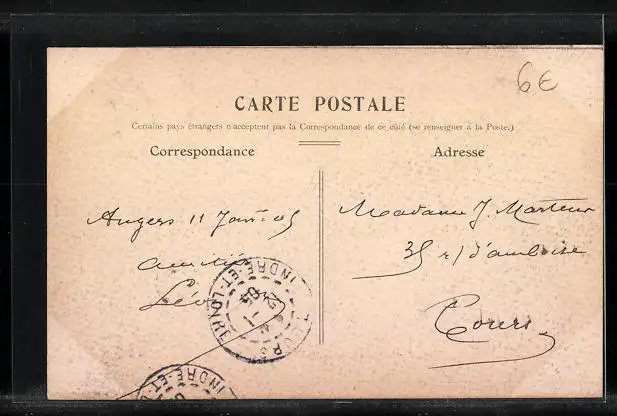 6€
CARTE POSTALE
Certains pays étrangers n'acceptent pas la Correspondance de ce côté (se renseigner à la Poste.)
Correspondance
Adresse
Angers 11 Janv 05
amitié
Léo
Madame J. Marteau
35 r/ d'amboise
Tours
TOURS
INDRE-ET-LOIRE
INDRE-ET-L